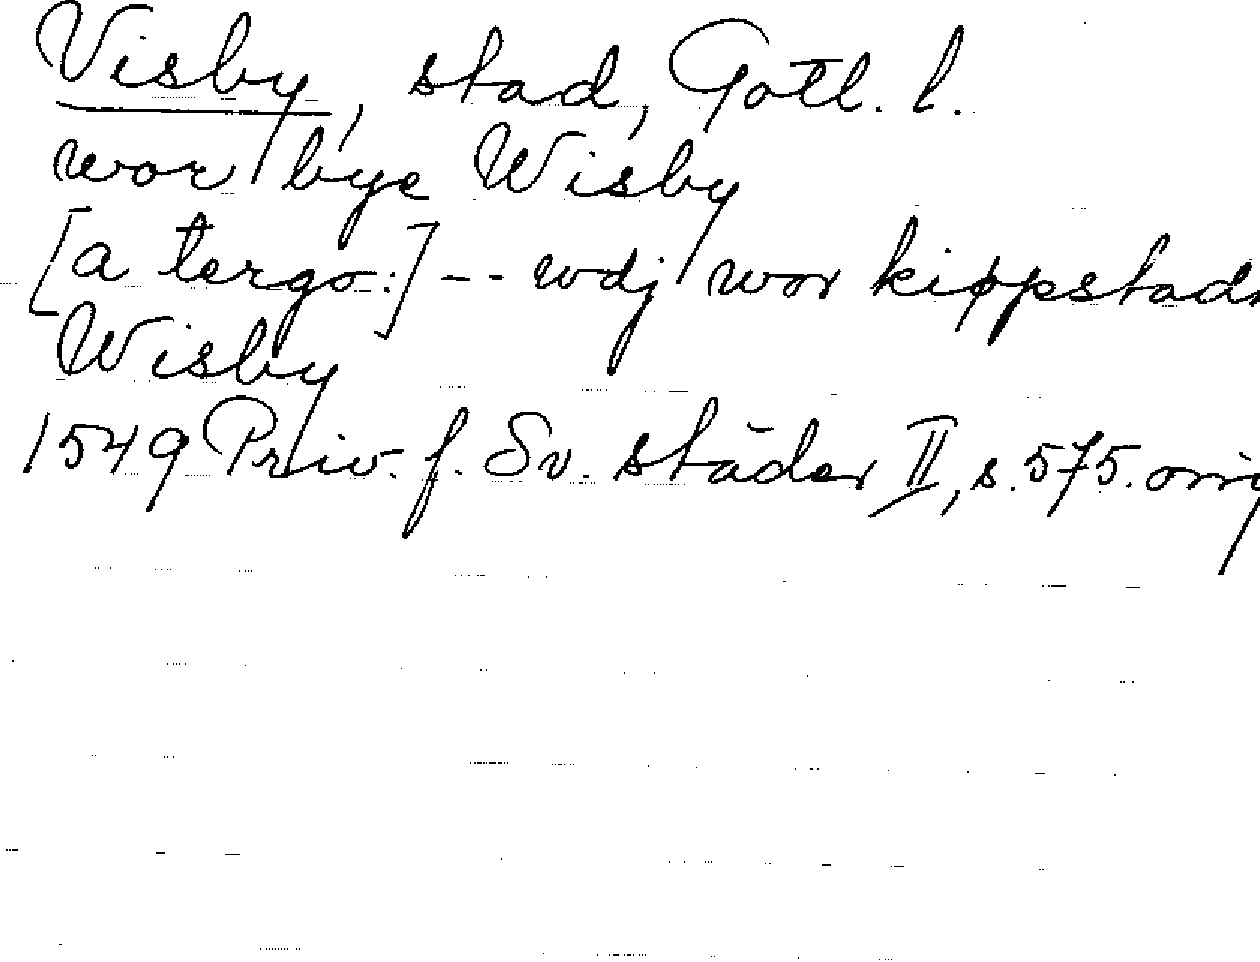 Visby, stad, Gotl. l.
wor bye Wisby
[a tergo:] -- wdj wor kippstadh
Wisby
1549 Priv. f. Sv. städer II, s. 575. orig